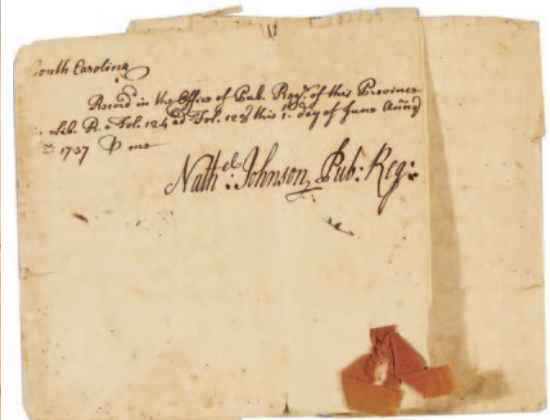 South Carolina
Record in the Office of Pub. Regr. of this Province
Lib. R. Fol. 124 ad Fol. 128 this 1. day of June
1737 me
Nathel: Johnson, Pub: Reg: